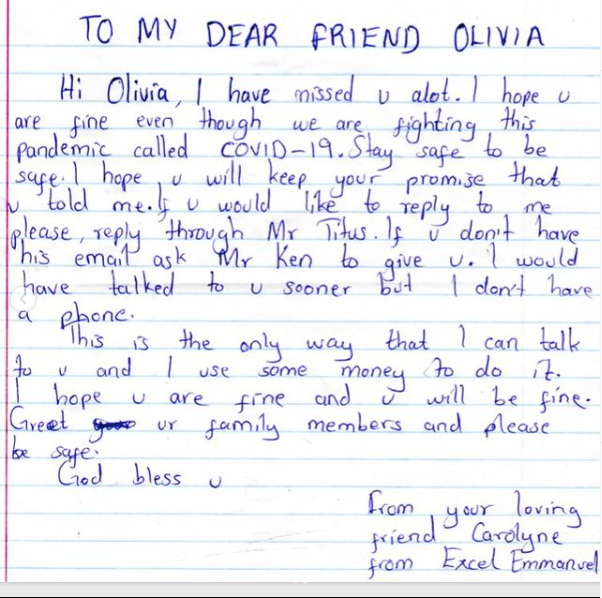 TO MY DEAR FRIEND OLIVIA
Hi Olivia, I have missed u alot. I hope u
are fine even though we are fighting this
pandemic called COVID-19. Stay safe to be
safe. I hope u will keep your promise that
u told me. If u would like to reply to me
please, reply through Mr Titus. If u don't have
his email ask Mr Ken to give u. I would
have talked to u sooner but I don't have
a phone.
This is the only way that I can talk
to u and I use some money to do it.
I hope u are fine and u will be fine.
Greet ur family members and please
be safe.
God bless u
From your loving
friend Carolyne
from Excel Emmanuel